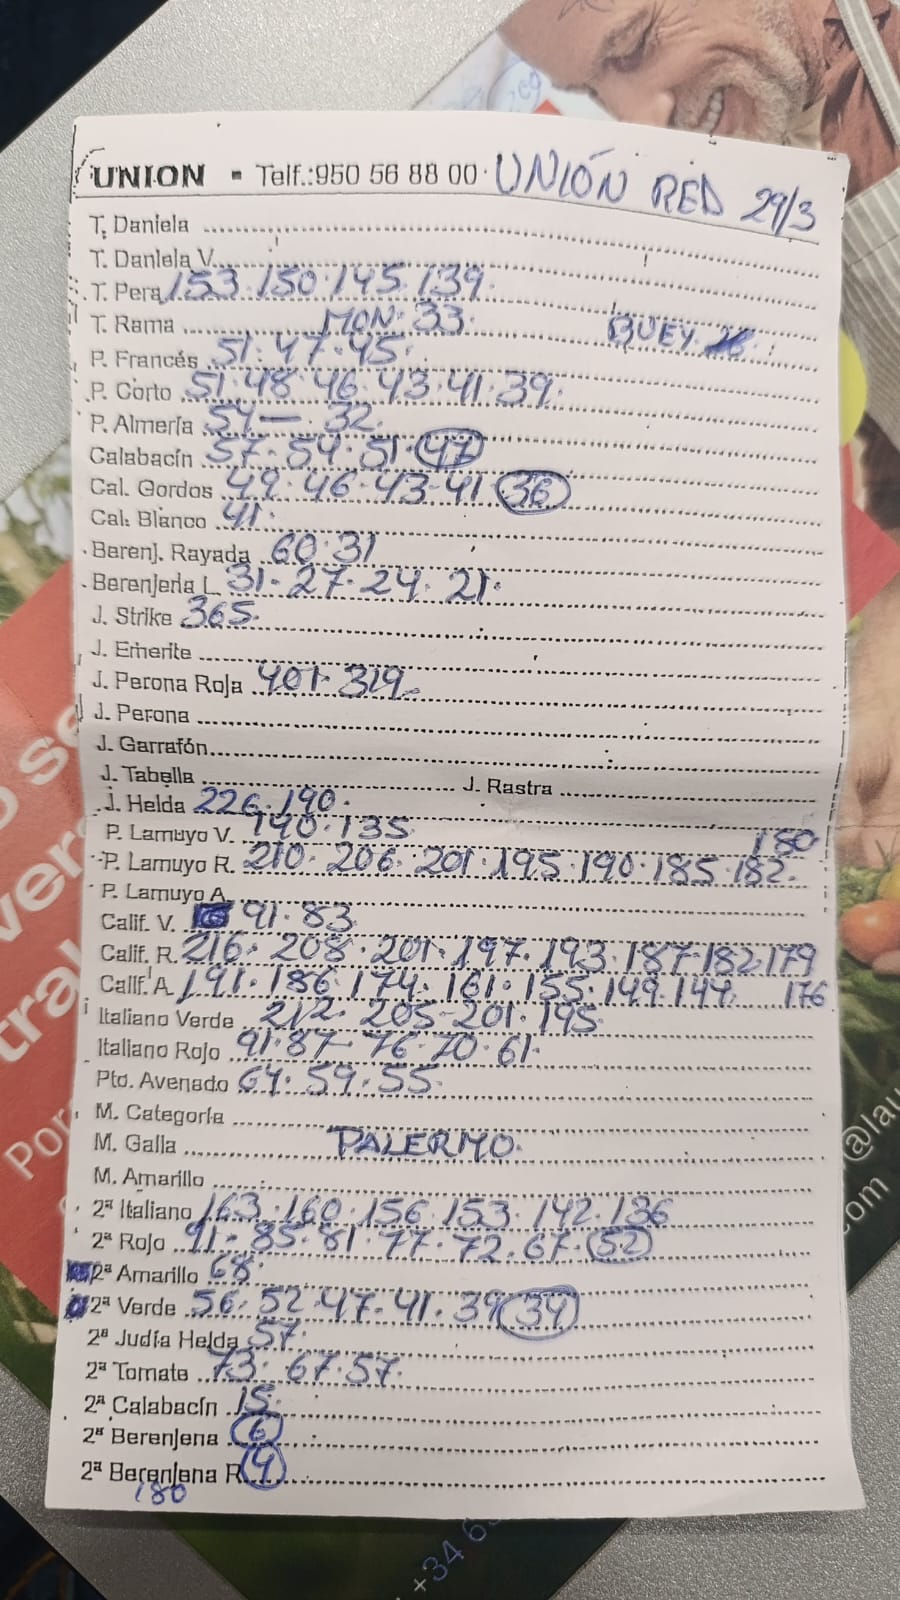 UNION - Telf.: 950 56 88 00 · UNIÓN RED 29/3
T. Daniela
T. Daniela V.
T. Pera 153·150·145·139·
T. Rama MON· 33 BUEY
P. Francés 51·47·45·
P. Corto 51·48·46·43·41·39·
P. Almería 54— 32·
Calabacín 57·54·51·47
Cal. Gordos 49·46·43·41 36
Cal. Blanco 41·
Berenj. Rayada 60·31
Berenjena L. 31·27·24·21·
J. Strike 365·
J. Emerite
J. Perona Roja 401·319
J. Perona
J. Garrafón
J. Tabella J. Rastra
J. Helda 226·190·
P. Lamuyo V. 140·135 180
P. Lamuyo R. 210·206·201·195·190·185·182·
P. Lamuyo A.
Calif. V. 91·83
Calif. R. 216·208·201·197·193·187·182·179
Calif. A. 191·186·174·161·155·149·144 176
Italiano Verde 212·205·201·195·
Italiano Rojo 91·87·76·70·61·
Pto. Avenado 64·59·55·
M. Categoría
M. Galia PALERMO·
M. Amarillo
2ª Italiano 163·160·156·153·142·136
2ª Rojo 91·85·81·77·72·67·52
2ª Amarillo 68·
2ª Verde 56·52·47·41·39 34
2ª Judía Helda 57·
2ª Tomate 73·67·57·
2ª Calabacín 15·
2ª Berenjena 6
2ª Berenjena R 4
180
Por
@lau
com
+34 6